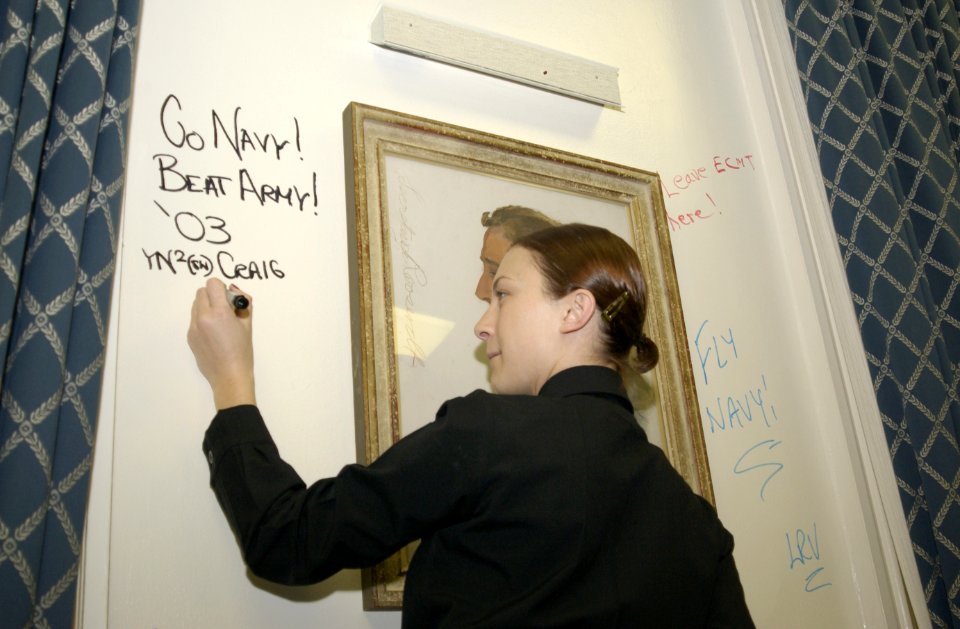 Go Navy!
Beat Army!
'03
YN2(SW) Craig
Leave ECMT
here!
FLY
NAVY!
LRV